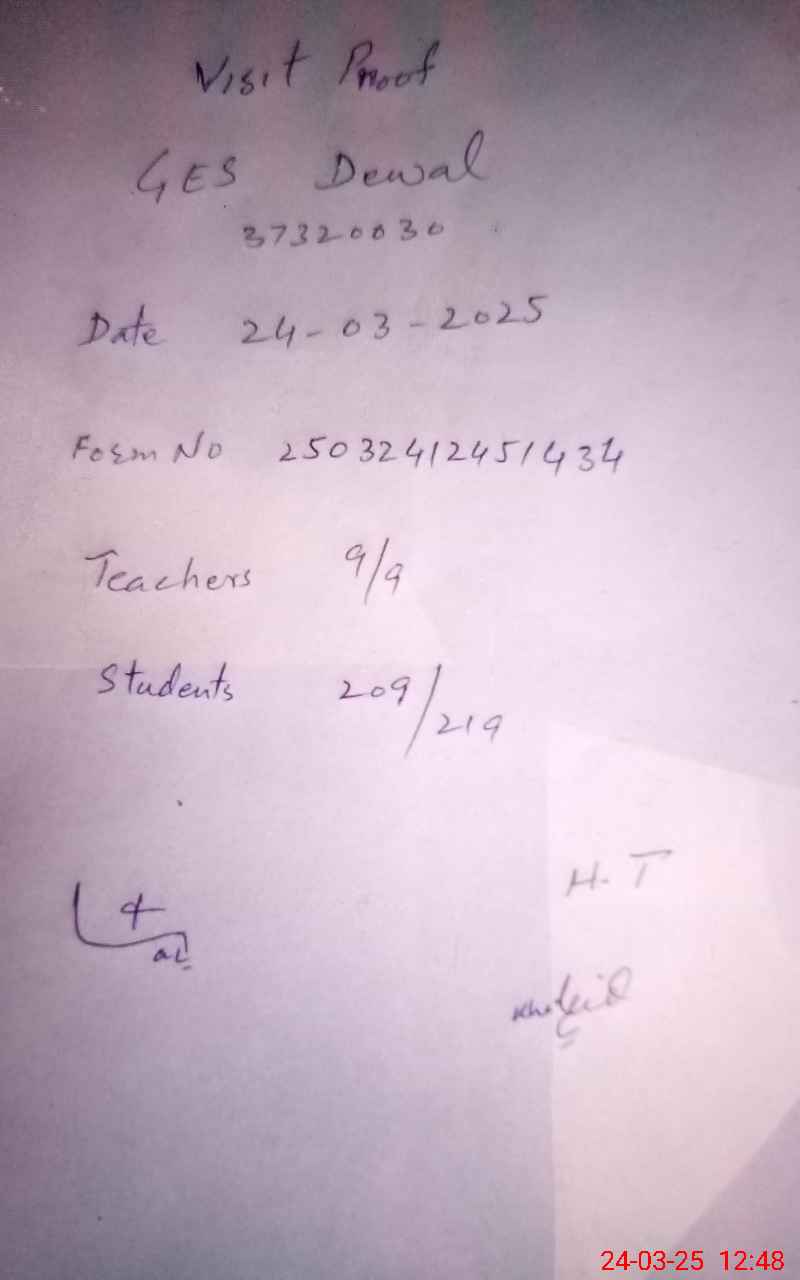 Visit Proof
GES Dewal
37320030
Date 24-03-2025
Form No 25032412451434
Teachers 9/9
Students 209/219
H.T
24-03-25 12:48